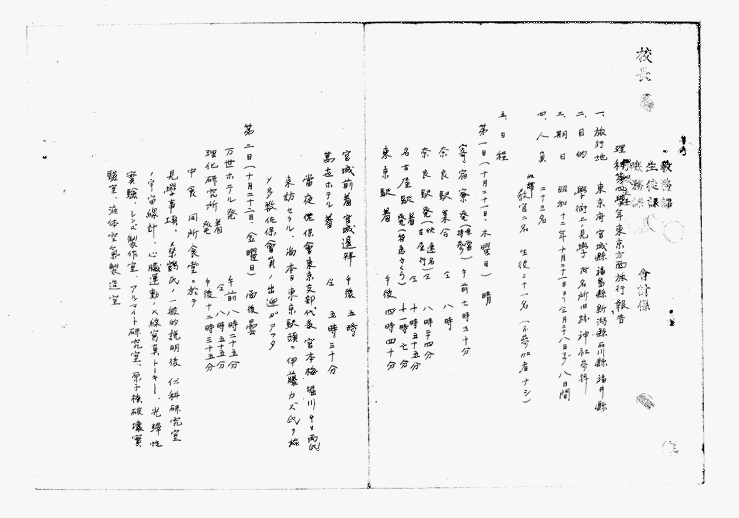 校長
教務課
生徒課
庶務課
會計係
理科第四學年東京方面旅行報告
一、旅行地 東京府宮城縣福島縣新潟縣石川縣福井縣
二、目的 學術上ノ見學 附名所旧蹟神社參拝
三、期日 昭和十二年十月二十一日ヨリ十月二十八日マデ 八日間
四、人員 二十三名
教官二名 生徒二十一名(不參加者ナシ)
五、日程
第一日(十月二十一日、木曜日) 晴
寄宿寮發 午前七時三十分
奈良駅集合 仝 八時
奈良駅發 仝 八時十四分
名古屋駅 着 仝 十時五十五分
發(特急かもめ) 仝 十一時七分
東京駅着 午後四時四十分
宮城前着 宮城遥拝 午後五時
萬世ホテル着 仝 五時三十分
當夜佐保會東京支部代表宮本梅 堀川キヨ両氏
来訪セラル、尚本日東京駅頭ニ伊藤カズ氏ヲ始
メ多数佐保會員ノ出迎ガアツタ
第二日(十月二十二日 金曜日) 雨後曇
万世ホテル發 午前八時二十五分
理化研究所 着 仝 八時五十五分
發 午後十二時三十五分
中食 同所食堂ニ於テ
見學事項、 氏ノ一般的説明後 仁科研究室
ノ宇宙線計、心臓運動ノX線寫真トーキー、光弾性
實驗、レンズ製作室、アルマイト研究室、原子核破壊實
驗室、液体空氣製造室